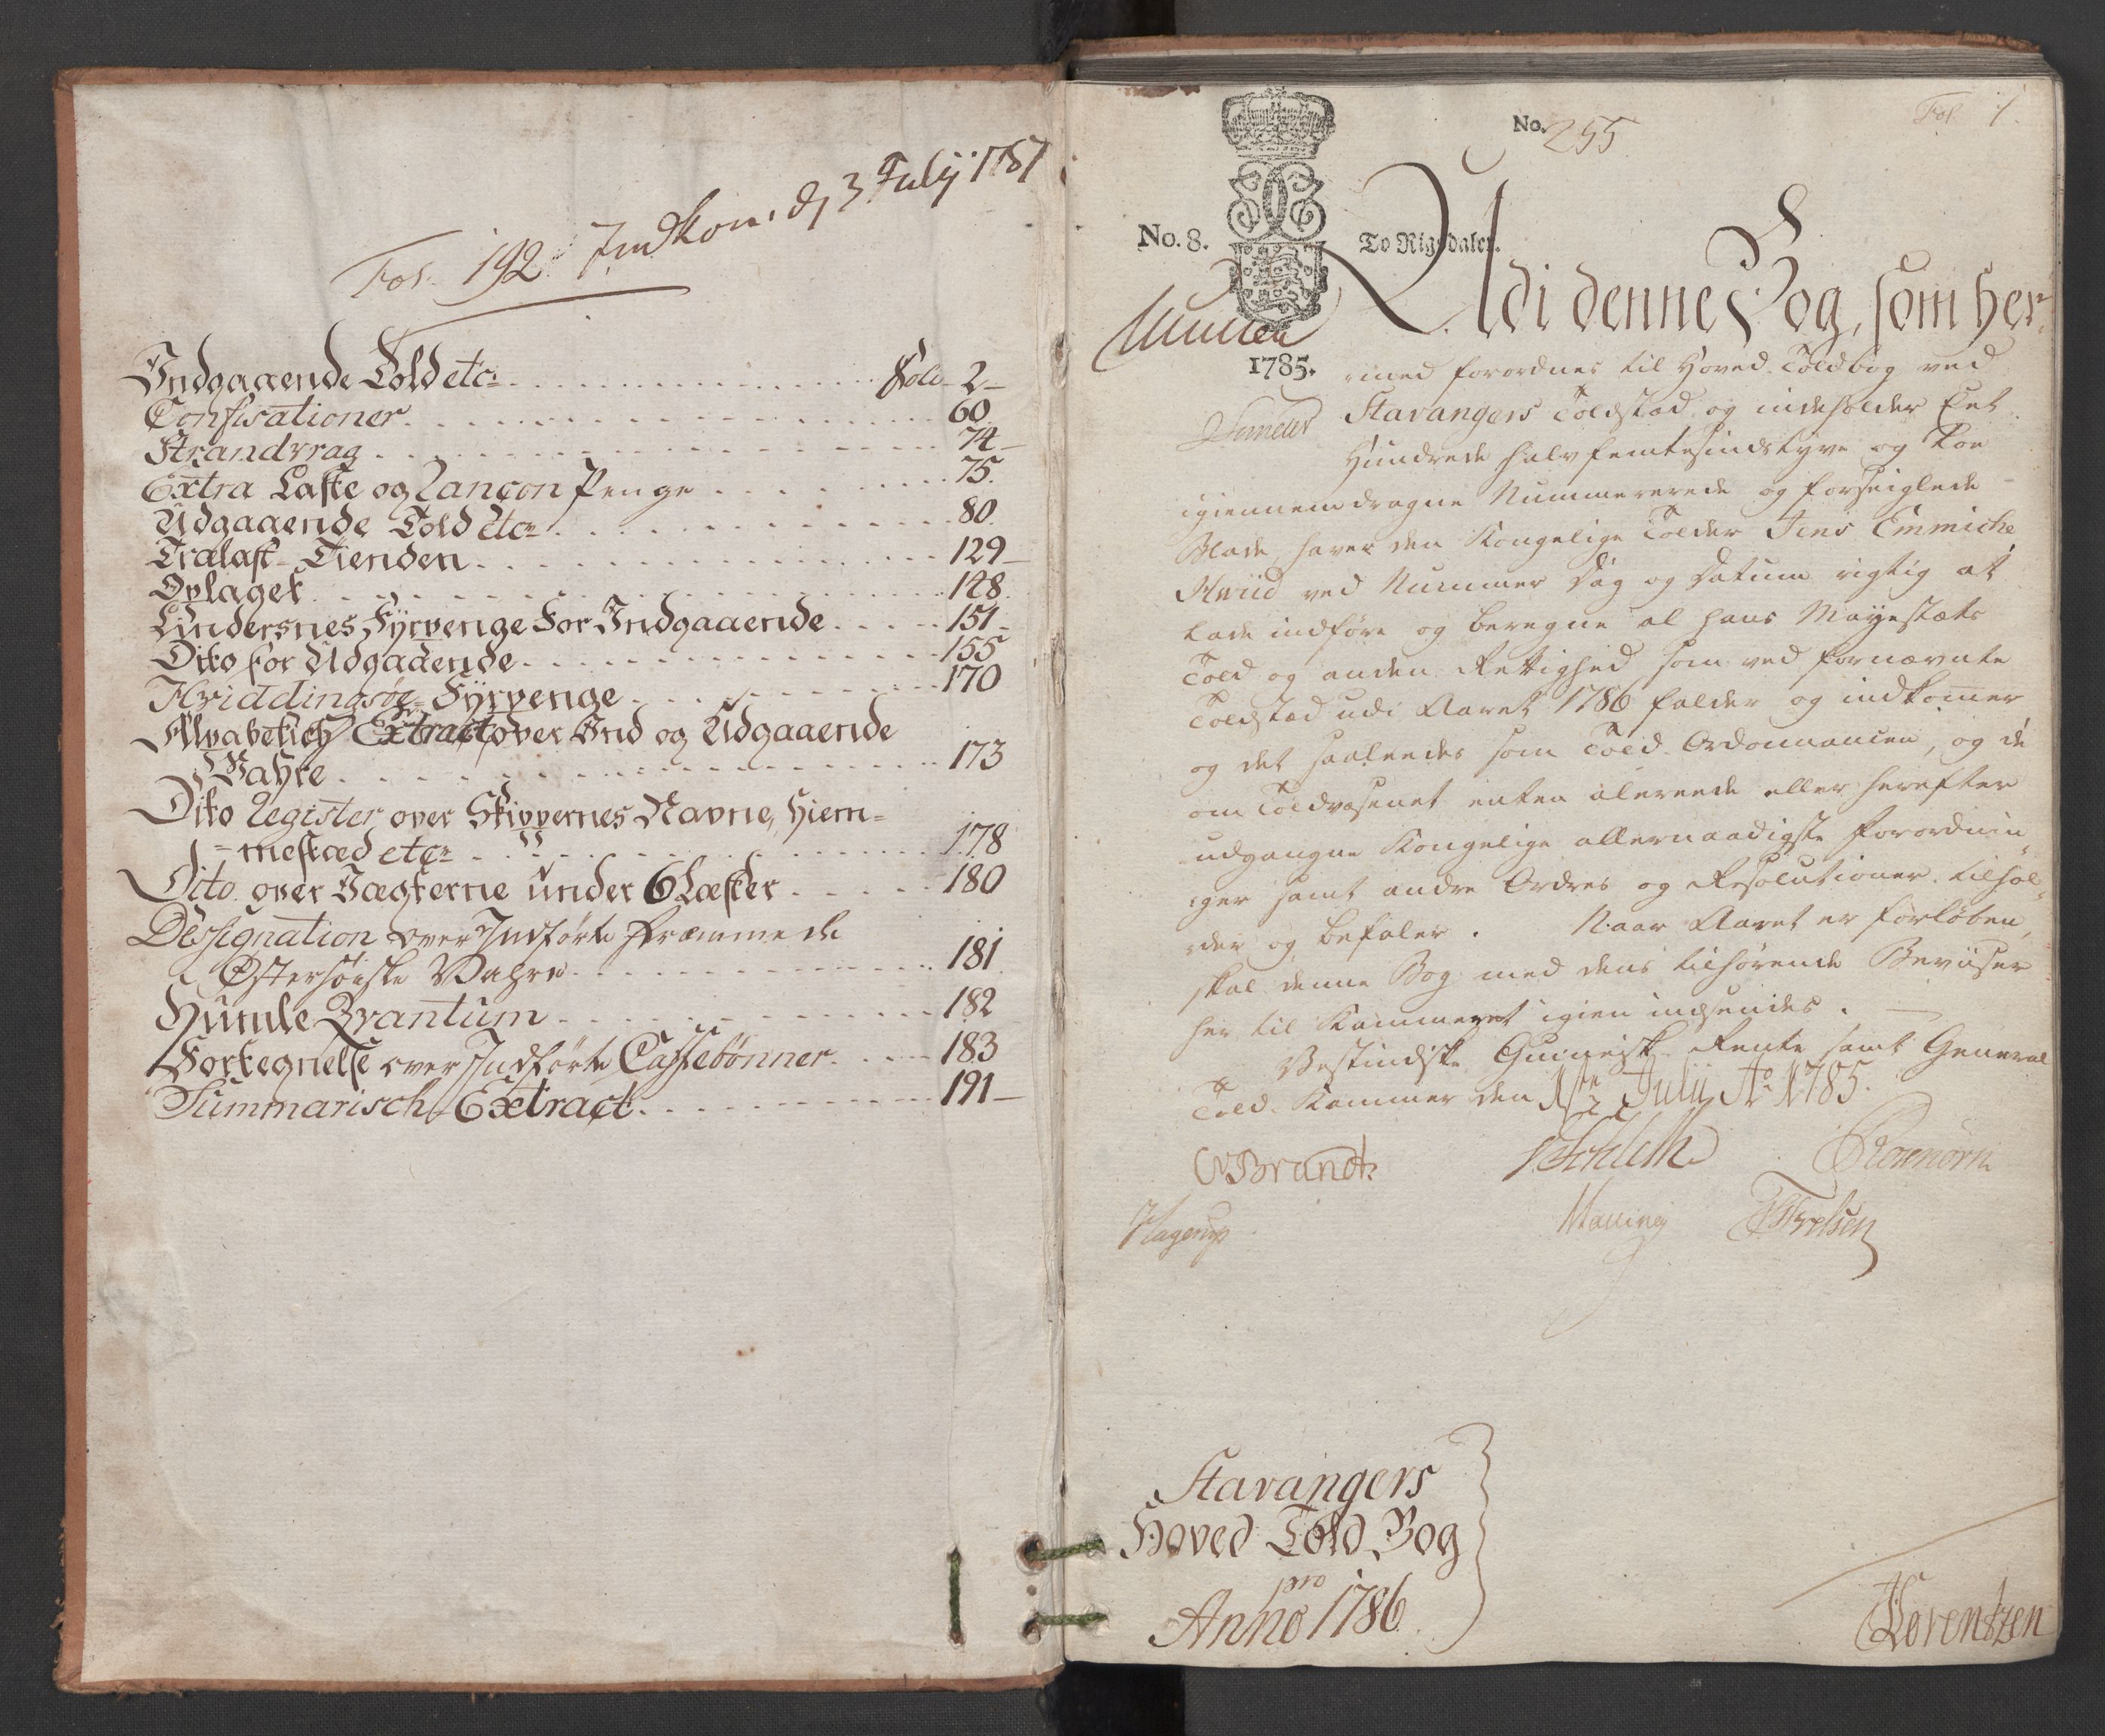 Fol. 192. Indkom: d. 3 Julij 1787
Indgaaende Told etc. Folio 2
Confisationer. 60
Strandvrag 74
Extra Laste og Rançon Penge 75.
Udgaaende Told etc. 80.
Trælast-Tienden 129
Oplaget 148.
Lindersnes Fyrpenge For Indgaaende 151
Dito for Udgaaende 155
Hviddingsøe-Fyrpenge 170
Alpabetisch Extract over Ind og Udgaaende
Wahre 173
Dito Register over Skippernes Navne, Hiem=
=mested etc. 178
Dito over Jægterne under 6 Læster 180
Dessignation over Indførte fræmmede
Østersøiske Wahre 181
Humle Qvantum 182
Fortegnelse over Indførte Caffebønner 183
Summarisch-Extract 191
No. 255
Fol. 1.
No. 8. To Rigsdaler.
1785.
Udi denne Bog, som her=
=med forordnes til Hoved-Toldbog ved
Stavangers Toldsted og indeholder Eet
Hundrede halvfemtesindstyve og Toe
igiennemdragne Nummererede og forseiglede
Blade, haver den Kongelige Tolder Jens Emmiche
Hviid ved Nummer Dag og Datum rigtig at
lade indføre og beregne al hans Mayestæts
Told og anden Rettighed som ved fornævnte
Toldsted udi Aaret 1786 falder og indkommer
og det saaledes som Told-Ordonnancen, og de
om Toldvæsenet enten allereede eller herefter
udgangne Kongelige allernaadigste Forordnin=
ger samt andre Ordres og Resolutioner tilhol=
der og befaler. Naar Aaret er forløben,
skal denne Bog med dens tilhørende Beviiser
her til Kammeret igien indsendes.
Vestindiske Guineisk Rente samt General
Told-Kammer den 1ste Julii Ao 1785.
CBrandt. Schilth Rosenørn
Hagerup Malling Trelsen
Stavangers
Hoved Told Bog
pro
Anno 1786.
Lorentzen